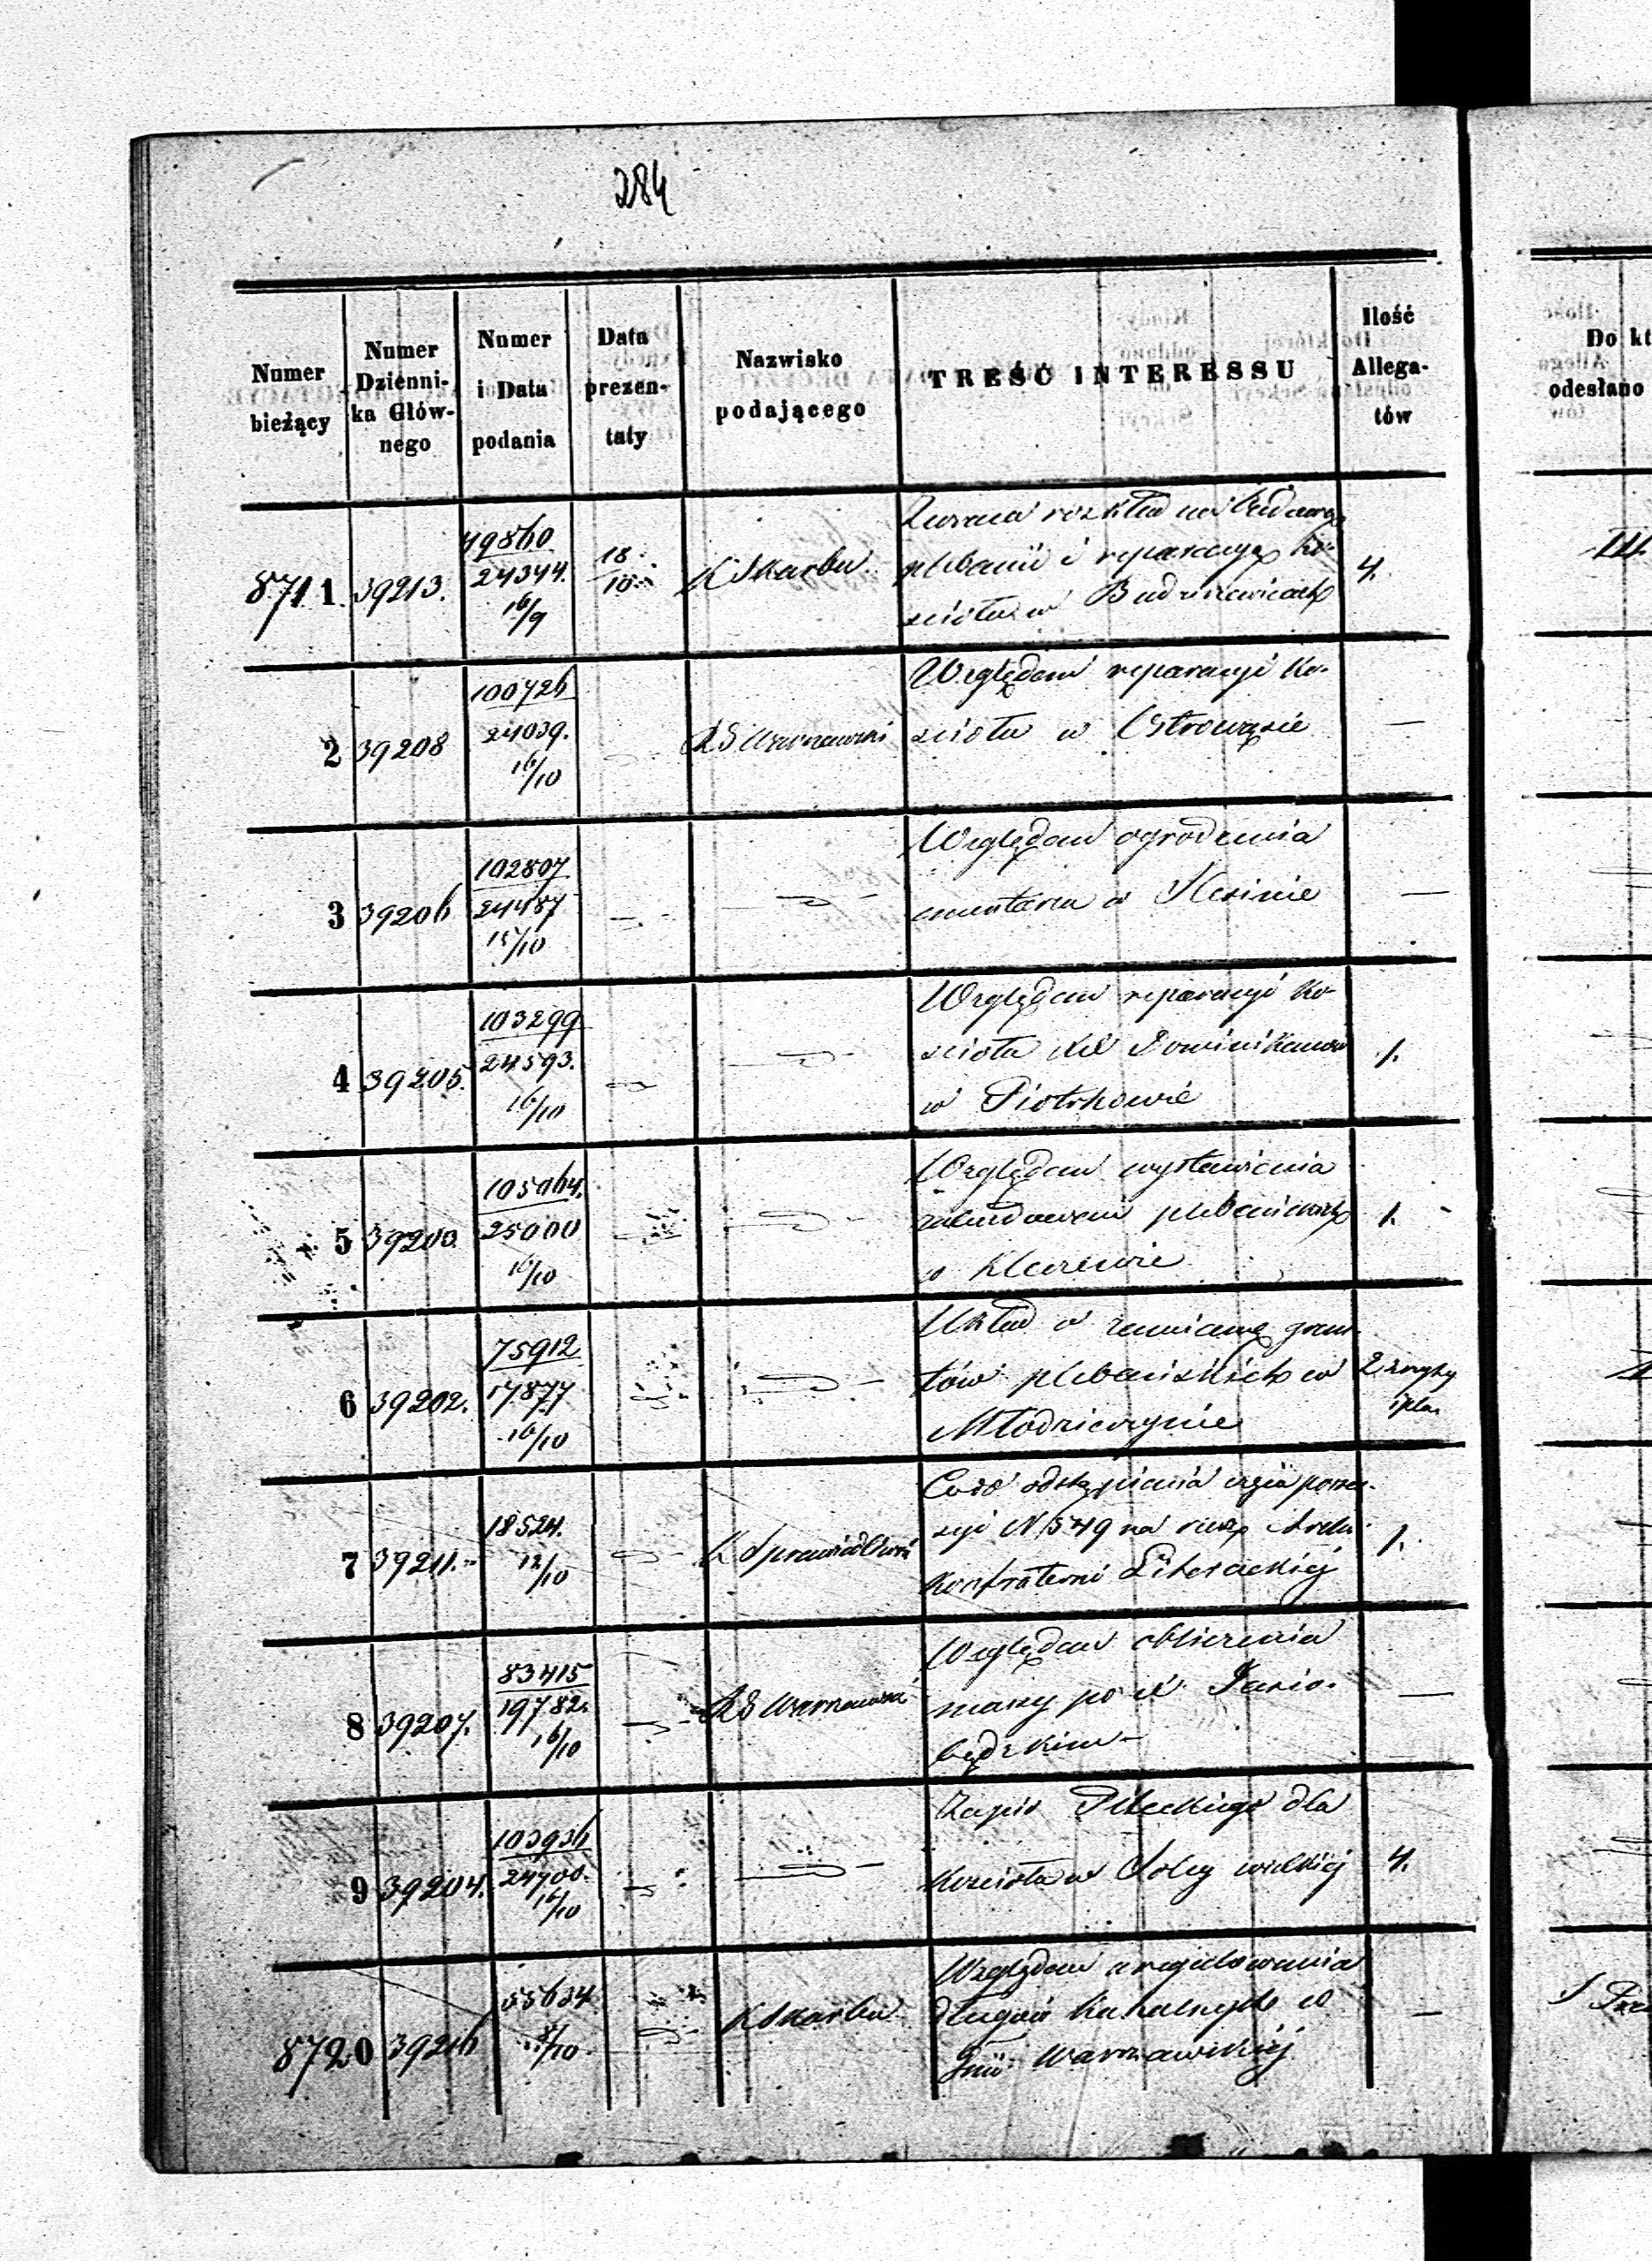 284
Numer bieżący
Numer Dzienni-ka Głów-nego
Numer i Data podania
Data prezen-taty
Nazwisko podającego
TREŚĆ INTERESSU
Ilość Allega-tów
Do kt
odesłano
8711. 39213. 79860 24344. 16/9 18/10 K Skarbu
Zwraca rozkład na
plebanii i reparacyą ko-
ścioła w Budziszewicach
4.
III.
2 39208 100726 24039. 16/10 RG Warszawski
Względem reparacyi Ko-
ścioła w Ostrowąsie
—
3 39206 102807 24487 15/10
Względem ogrodzenia
cmentarza w Slesinie
—
4 39205. 103299 24593. 16/10
Względem reparacyi Ko-
ścioła XX Dominikanów
w Piotrkowie
1.
5 39200. 105064. 25000 16/10
Względem wystawienia
zabudowań plebańskich
w Kleczewie
1.
6 39202. 75912 17877 16/10
Układ o zamianę grun-
tów plebańskich w
Młodzieszynie
2
7 39211. 18524. 12/10 K Sprawiedliwoś
Coło odstąpienia części posse-
syi N 549 na rzecz Archi-
Konfraterni Literackiej
1.
8 39207. 83415 19782. 16/10 RG Warszawski
Względem obliczenia
massy po X.
—
9 39204. 103936 24700. 16/10
Zapis Pileckiego dla
Kościoła w Soley wielkiej
4.
8720 39216 55634 /10 K Skarbu
Względem uregulowania
długów Kahalnych w
Gnii Warszawskiej
—